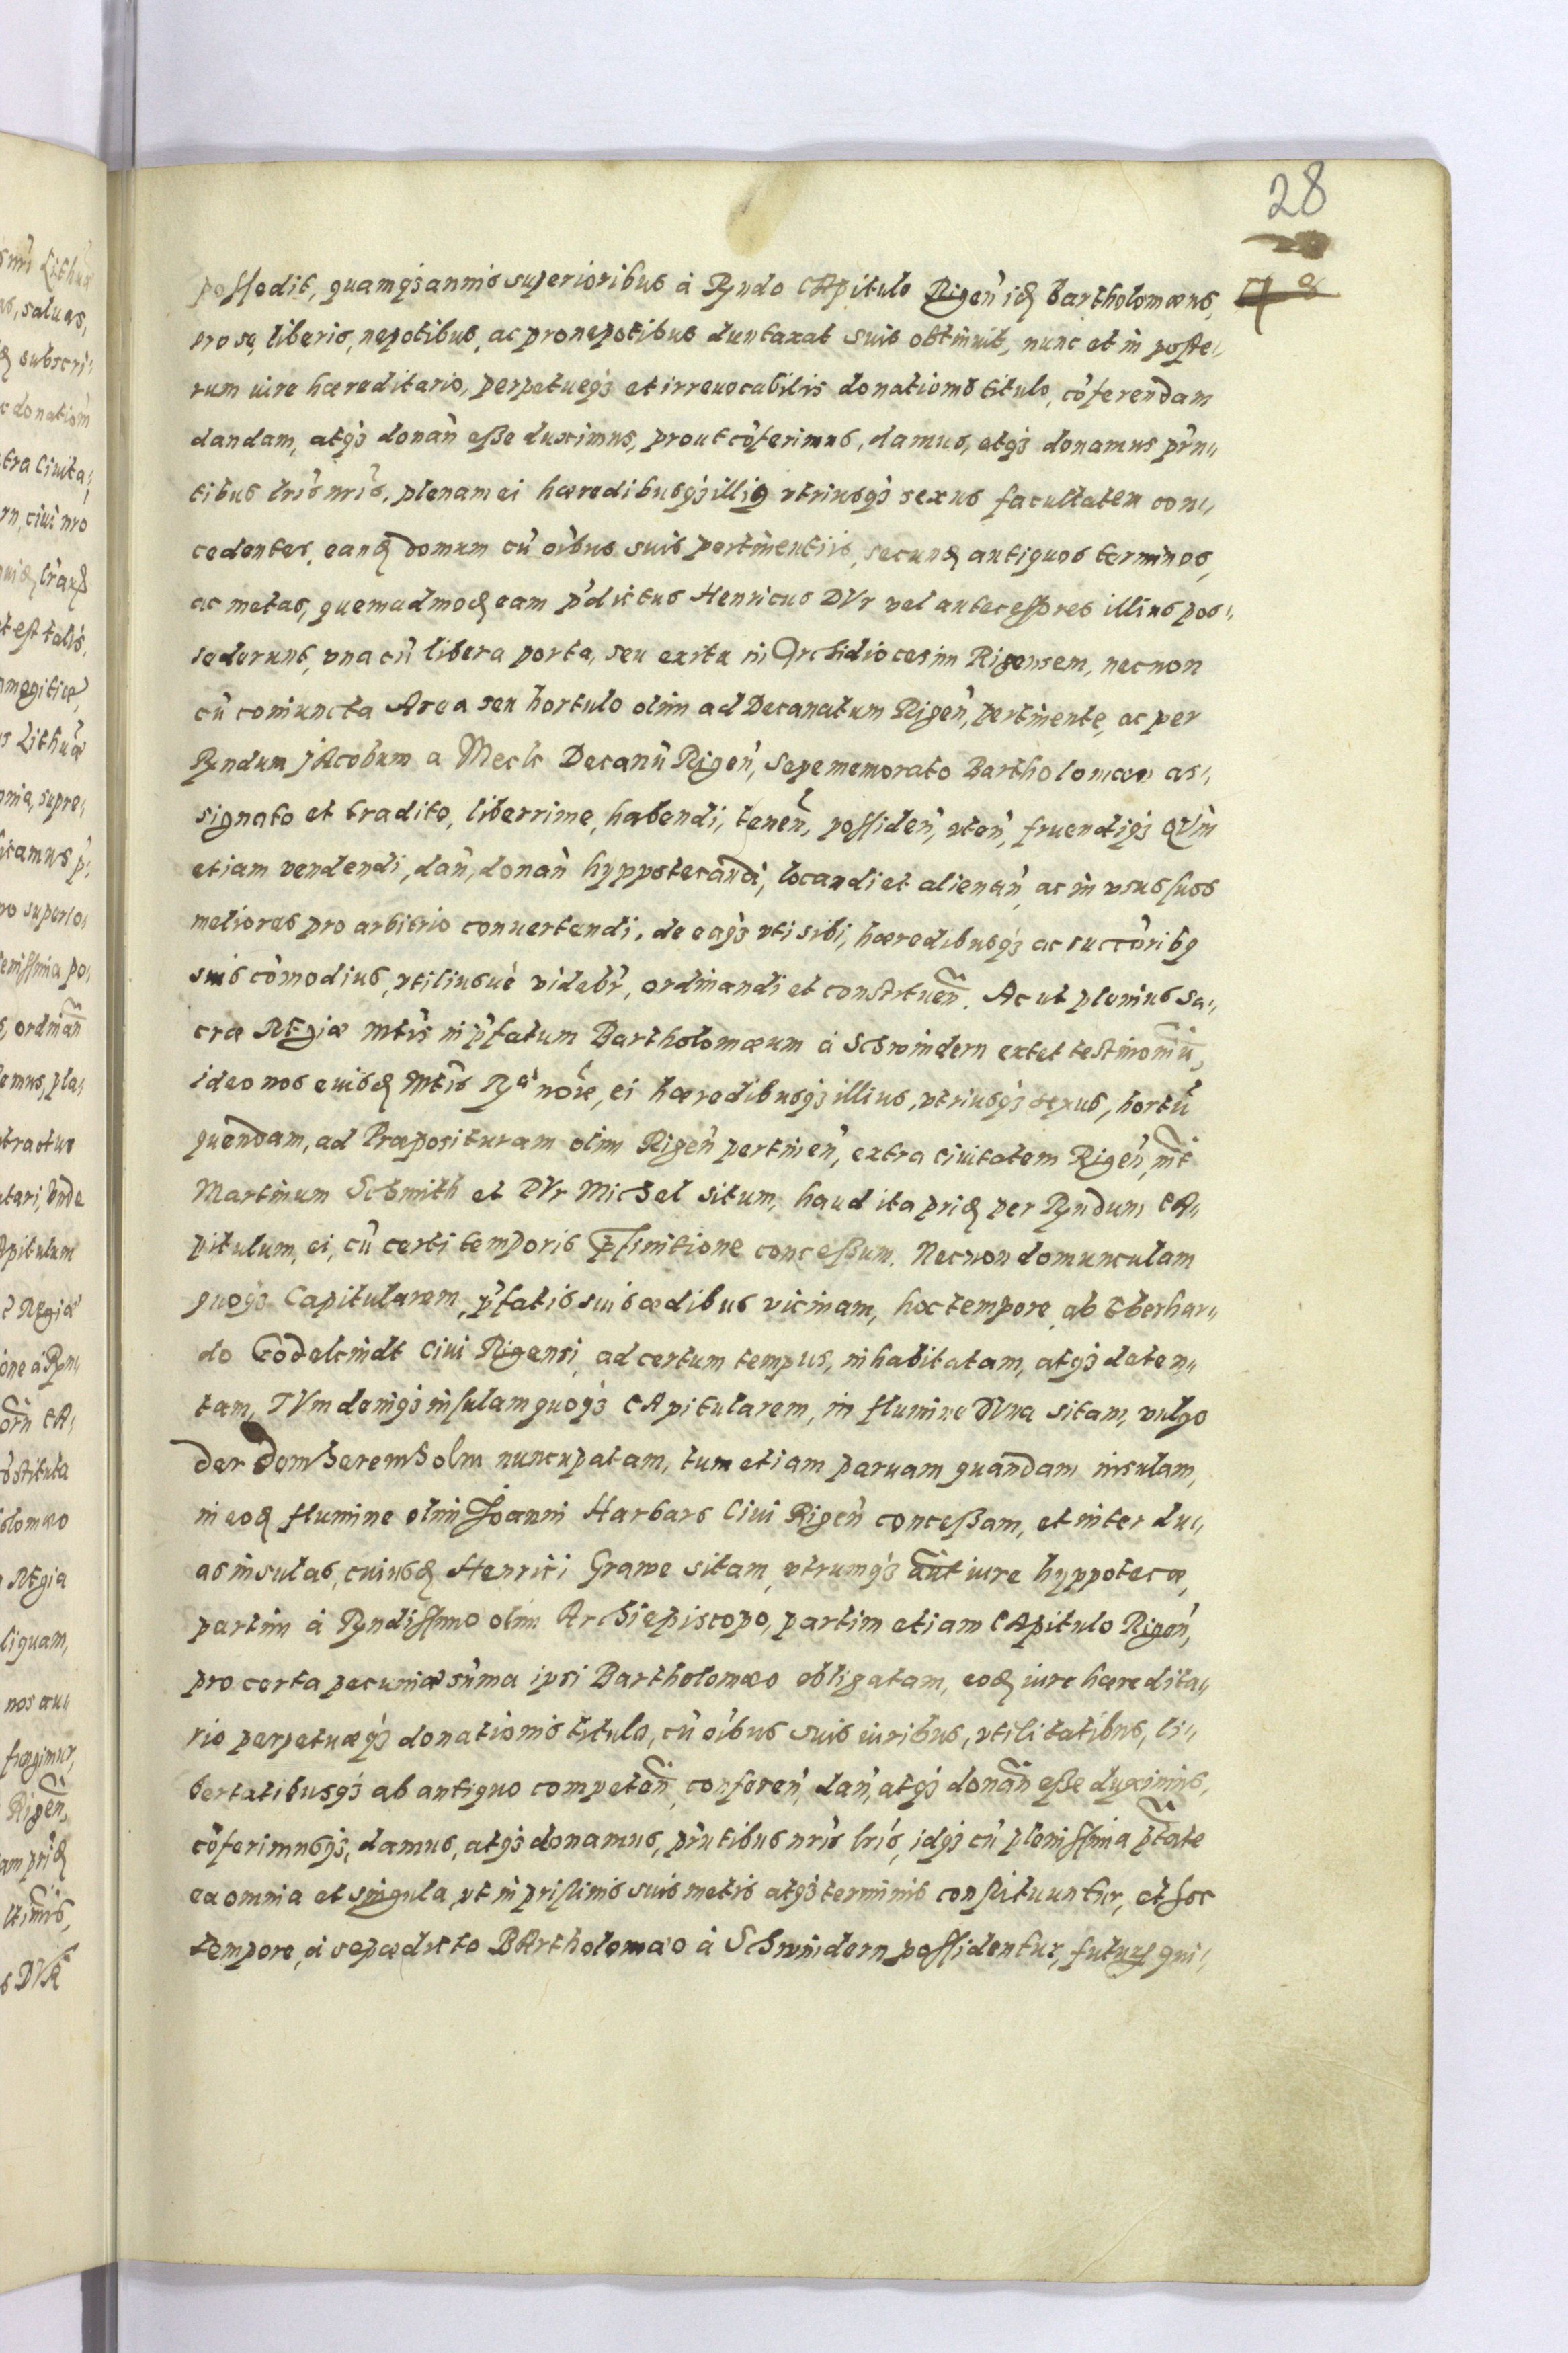 28
possedit, quamqȝ annis superioribus à Rndo CApitulo Rigeñ idē Bartholomæus,
pro se, liberis, nepotibus, ac pronepotibus duntaxat suis obtinuit, nunc et in poste,,
rum iure hæreditario, perpetueqȝ et irreuocabilis donationis titulo, cõferendam
dandam, atqȝ donañ esse duximus, prout cõferimus, damus, atqȝ donamus p̃rn,,
tibus lr̃is nr̃is, plenam ei hæredibusqȝ illiꝯ vtriusqȝ sexus facultatem con,,
cedentes, eandē domum cũ oĩbus suis pertinentiis, secundū antiquos terminos,
ac metas, quemadmodū eam p̃dictus Henricus DVr vel antecessores illius pos,,
sederunt, vna cũ libera porta, seu exitu in Archidiocesim Rigensem, necnon
cũ coniuncta Area seu hortulo olim ad Decanatum Rigeñ, pertinente, ac per
Rndum JAcobum a Meck Decanũ Rigeñ, sepememorato Bartholomæo as,,
signato et tradito, liberrime, habendi, teneñ, possideñ, vteñ, fruendiqȝ QVin
etiam vendendi, dañ, donañ hyppotecandi, locandi et alienañ, ac in vsus suos
meliores pro arbitrio conuertendi, de eaqȝ vti sibi, hæredibusqȝ ac succõribꝯ
suis cõmodius, vtiliusue videbr̃, ordinandi et constitueñ. Ac ut plenius Sa,,
cræ REgiæ Mtĩs in p̃fatum Bartholomæum à Schwindern extet testimoniũ,
ideo nos eiusdē Mtĩs Rᵃ nõie, ei hæredibusqȝ illius, vtriusqȝ sexus, hortũ
quendam, ad Præposituram olim Rigeñ pertineñ, extra ciuitatem Rigeñ, int̃
Martinum Schmith et DVr Michel situm, haud ita pridē per Rndum CA,,
pitulum, ei, cũ certi temporis p̃finitione concessum. Necnon domunculam
quoqȝ Capitularem, p̃fatis suis ædibus vicinam, hoc tempore ab Eberhar,,
do Godelindt Ciui Rigensi, ad certum tempus, inhabitatam, atqȝ deten,,
tam, TVm deniqȝ insulam quoqȝ CApitularem, in flumine DVna sitam, vulgo
der domherem holm nuncupatam, tum etiam paruam quandam insulam,
in eodē flumine olim Joanni Harbars Ciui Rigeñ concessam, et inter du,,
as insulas, cuiusdē Henrici Grawe sitam, vtrumqȝ aut̃ iure hyppotecæ,
partim à Rndissimo olim Archiepiscopo, partim etiam CApitulo Rigeñ,
pro certa pecuniæ sũma ipsi Bartholomæo obligatam, eodē iure hæredita,,
rio perpetuæqȝ donationis titulo, cũ oĩbus suis iuribus, vtilitatibus, li,,
bertatibusqȝ ab antiquo competeñ, confereñ, dañ, atqȝ donañ esse duximus,
cõferimusqȝ, damus, atqȝ donamus, p̃rntibus nr̃is lr̃is, idqȝ cũ plenissima p̃tate
ea omnia et singula, vt in pristinis suis metis atqȝ terminis constituuntur, et hoc
tempore, à sepædicto BArtholomæo à Schwindern possidentur, futurꝝ qui,,